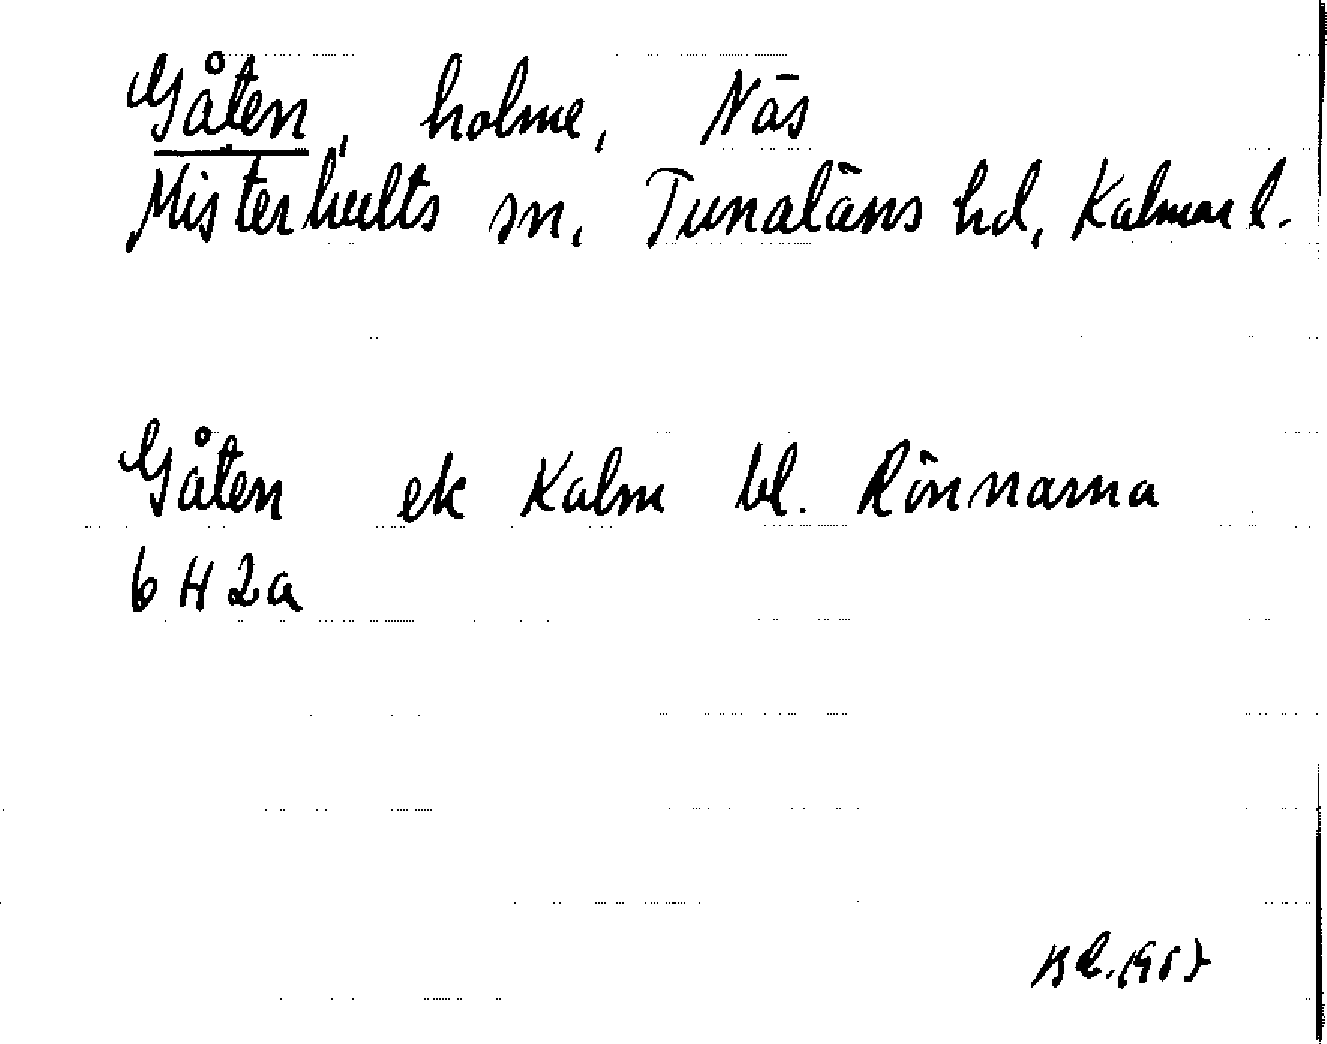 Gåten, holme, Näs
Misterhults sn, Tunaläns hd, Kalmar l.
Gåten ek Kalm bl. Rönnarna
6 H 2a